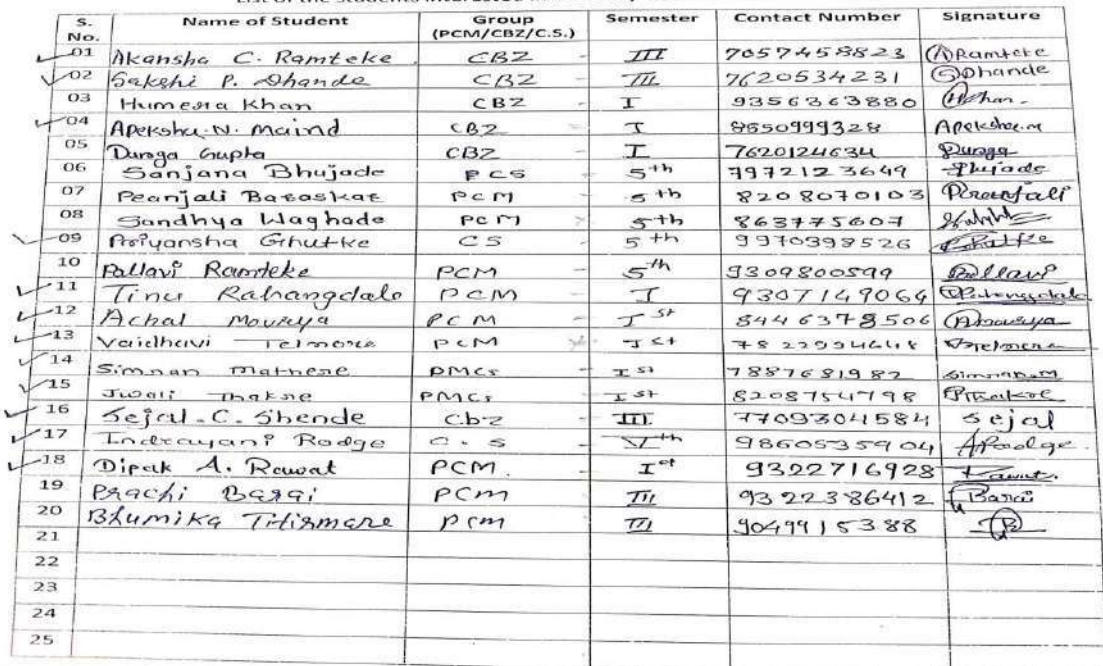 List of the students interested in
S. No. Name of Student Group (PCM/CBZ/C.S.) Semester Contact Number Signature
01 Akansha C. Ramteke CBZ III 7057458823 Ramteke
02 Sakshi P. Dhande CBZ III 7620534231 Dhande
03 Humera Khan CBZ I 9356363880 Khan.
04 Apeksha.N. Maind CBZ I 8550999328 Apeksha.m
05 Durga Gupta CBZ I 7620124634 Durga
06 Sanjana Bhujade PCS 5th 7972123649 Bhujade
07 Pranjali Baraskar PCM 5th 8208070103 Pranjali
08 Sandhya Waghade PCM 5th 863775607
09 Priyansha Ghutke CS 5th 9970398526 Ghutke
10 Pallavi Ramteke PCM 5th 9309800599 Pallavi
11 Tinu Rahangdale PCM I 9307149064 Rahangdale
12 Achal Mourya PCM Ist 8446378506 Amourya
13 Vaidhavi Telmore PCM Ist 7822994648 Vtelmore
14 Simran Mathere PMCs Ist 7887681982 Simran.M
15 Thakre PMCs Ist 8208754798
16 Sejal.C. Shende Cbz III 77093041584 Sejal
17 Indrayani Rodge C.S Vth 9860535904
18 Dipak A. Rawat PCM. Ist 9322716928 Rawat.
19 Prachi Barai PCM III 9322386412 Barai
20 Bhumika Titirmare pcm III 9049915388
21
22
23
24
25